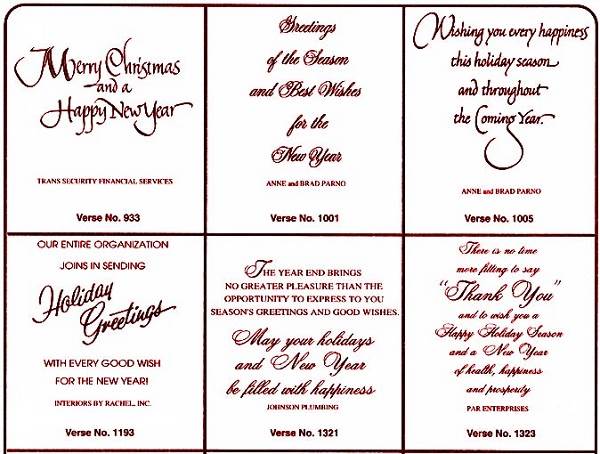 Merry Christmas
and a
Happy New Year
TRANS SECURITY FINANCIAL SERVICES
Verse No. 933
Greetings
of the Season
and Best Wishes
for the
New Year
ANNE and BRAD PARNO
Verse No. 1001
Wishing you every happiness
this holiday season
and throughout
the Coming Year.
ANNE and BRAD PARNO
Verse No. 1005
OUR ENTIRE ORGANIZATION
JOINS IN SENDING
Holiday
Greetings
WITH EVERY GOOD WISH
FOR THE NEW YEAR!
INTERIORS BY RACHEL, INC.
Verse No. 1193
THE YEAR END BRINGS
NO GREATER PLEASURE THAN THE
OPPORTUNITY TO EXPRESS TO YOU
SEASON'S GREETINGS AND GOOD WISHES.
May your holidays
and New Year
be filled with happiness
JOHNSON PLUMBING
Verse No. 1321
There is no time
more fitting to say
"Thank You"
and to wish you a
Happy Holiday Season
and a New Year
of health, happiness
and prosperity
PAR ENTERPRISES
Verse No. 1323